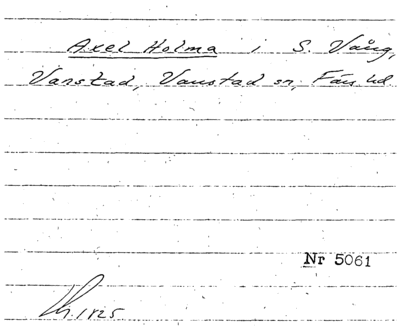 Axel Holma i S. Vång,
Vanstad, Vanstad sn, Färs hd.
Nr 5061